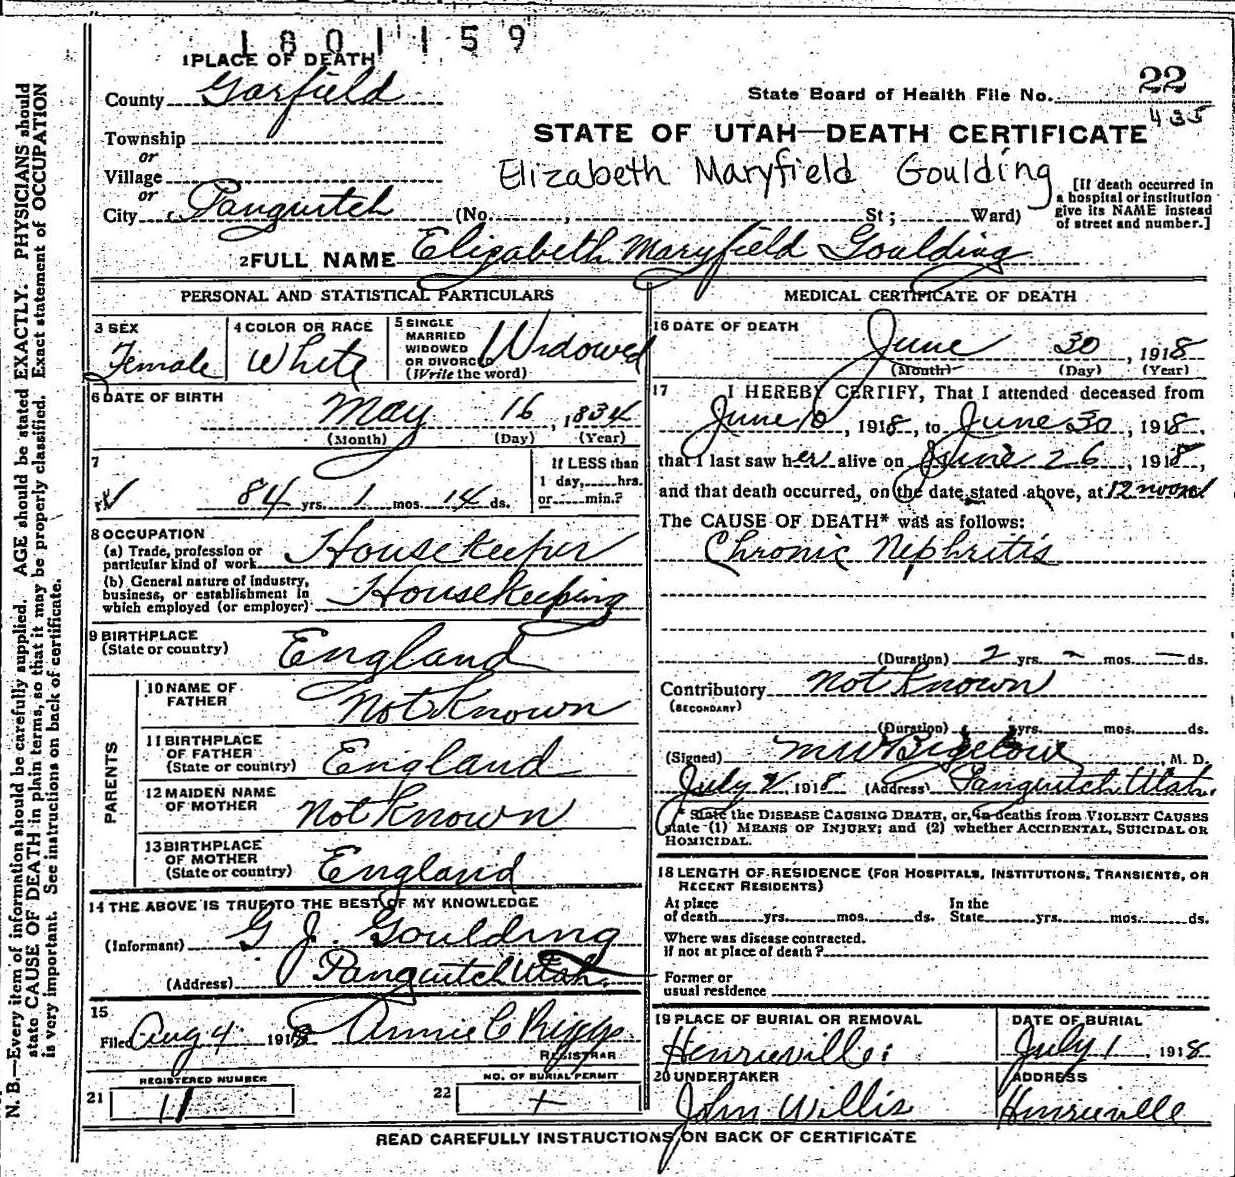 1801159
1 PLACE OF DEATH
County Garfield
22
State Board of Health File No.
435
Township
or
STATE OF UTAH—DEATH CERTIFICATE
Village
or
Elizabeth Maryfield Goulding
City Panguitch (No. , St; Ward)
[If death occurred in
a hospital or institution
give its NAME instead
of street and number.]
2 FULL NAME Elizabeth Maryfield Goulding
PERSONAL AND STATISTICAL PARTICULARS
3 SEX
Female
4 COLOR OR RACE
White
5 SINGLE
MARRIED
WIDOWED
OR DIVORCED
(Write the word)
Widowed
6 DATE OF BIRTH
May 16, 1834
(Month) (Day) (Year)
7
84 yrs. 1 mos. 14 ds.
If LESS than
1 day, hrs.
or min.?
8 OCCUPATION
(a) Trade, profession or
particular kind of work Housekeeper
(b) General nature of industry,
business, or establishment in
which employed (or employer) Housekeeping
9 BIRTHPLACE
(State or country) England
PARENTS
10 NAME OF
FATHER Not Known
11 BIRTHPLACE
OF FATHER
(State or country) England
12 MAIDEN NAME
OF MOTHER Not Known
13 BIRTHPLACE
OF MOTHER
(State or country) England
14 THE ABOVE IS TRUE TO THE BEST OF MY KNOWLEDGE
(Informant) G J. Goulding
(Address) Panguitch Utah.
15
Filed Aug 4 1918 Annie C Riggs
REGISTRAR
REGISTERED NUMBER
21 11
NO. OF BURIAL PERMIT
22 +
MEDICAL CERTIFICATE OF DEATH
16 DATE OF DEATH
June 30, 1918
(Month) (Day) (Year)
17 I HEREBY CERTIFY, That I attended deceased from
June 10, 1918, to June 30, 1918,
that I last saw her alive on June 26, 1918,
and that death occurred, on the date stated above, at 12 noon
The CAUSE OF DEATH* was as follows:
Chronic Nephritis
(Duration) 2 yrs. - mos. - ds.
Contributory Not Known
(SECONDARY)
(Duration) yrs. mos. ds.
(Signed) M W Bigelow, M. D.
July 2, 1918 (Address) Panguitch Utah.
* State the DISEASE CAUSING DEATH, or, in deaths from VIOLENT CAUSES
state (1) MEANS OF INJURY; and (2) whether ACCIDENTAL, SUICIDAL OR
HOMICIDAL.
18 LENGTH OF RESIDENCE (FOR HOSPITALS, INSTITUTIONS, TRANSIENTS, OR
RECENT RESIDENTS)
At place In the
of death yrs. mos. ds. State yrs. mos. ds.
Where was disease contracted.
if not at place of death?
Former or
usual residence
19 PLACE OF BURIAL OR REMOVAL
Henrieville
DATE OF BURIAL
July 1, 1918
20 UNDERTAKER
John Willis
ADDRESS
Henrieville
READ CAREFULLY INSTRUCTIONS ON BACK OF CERTIFICATE
N. B.—Every item of information should be carefully supplied. AGE should be stated EXACTLY. PHYSICIANS should
state CAUSE OF DEATH in plain terms, so that it may be properly classified. Exact statement of OCCUPATION
is very important. See instructions on back of certificate.